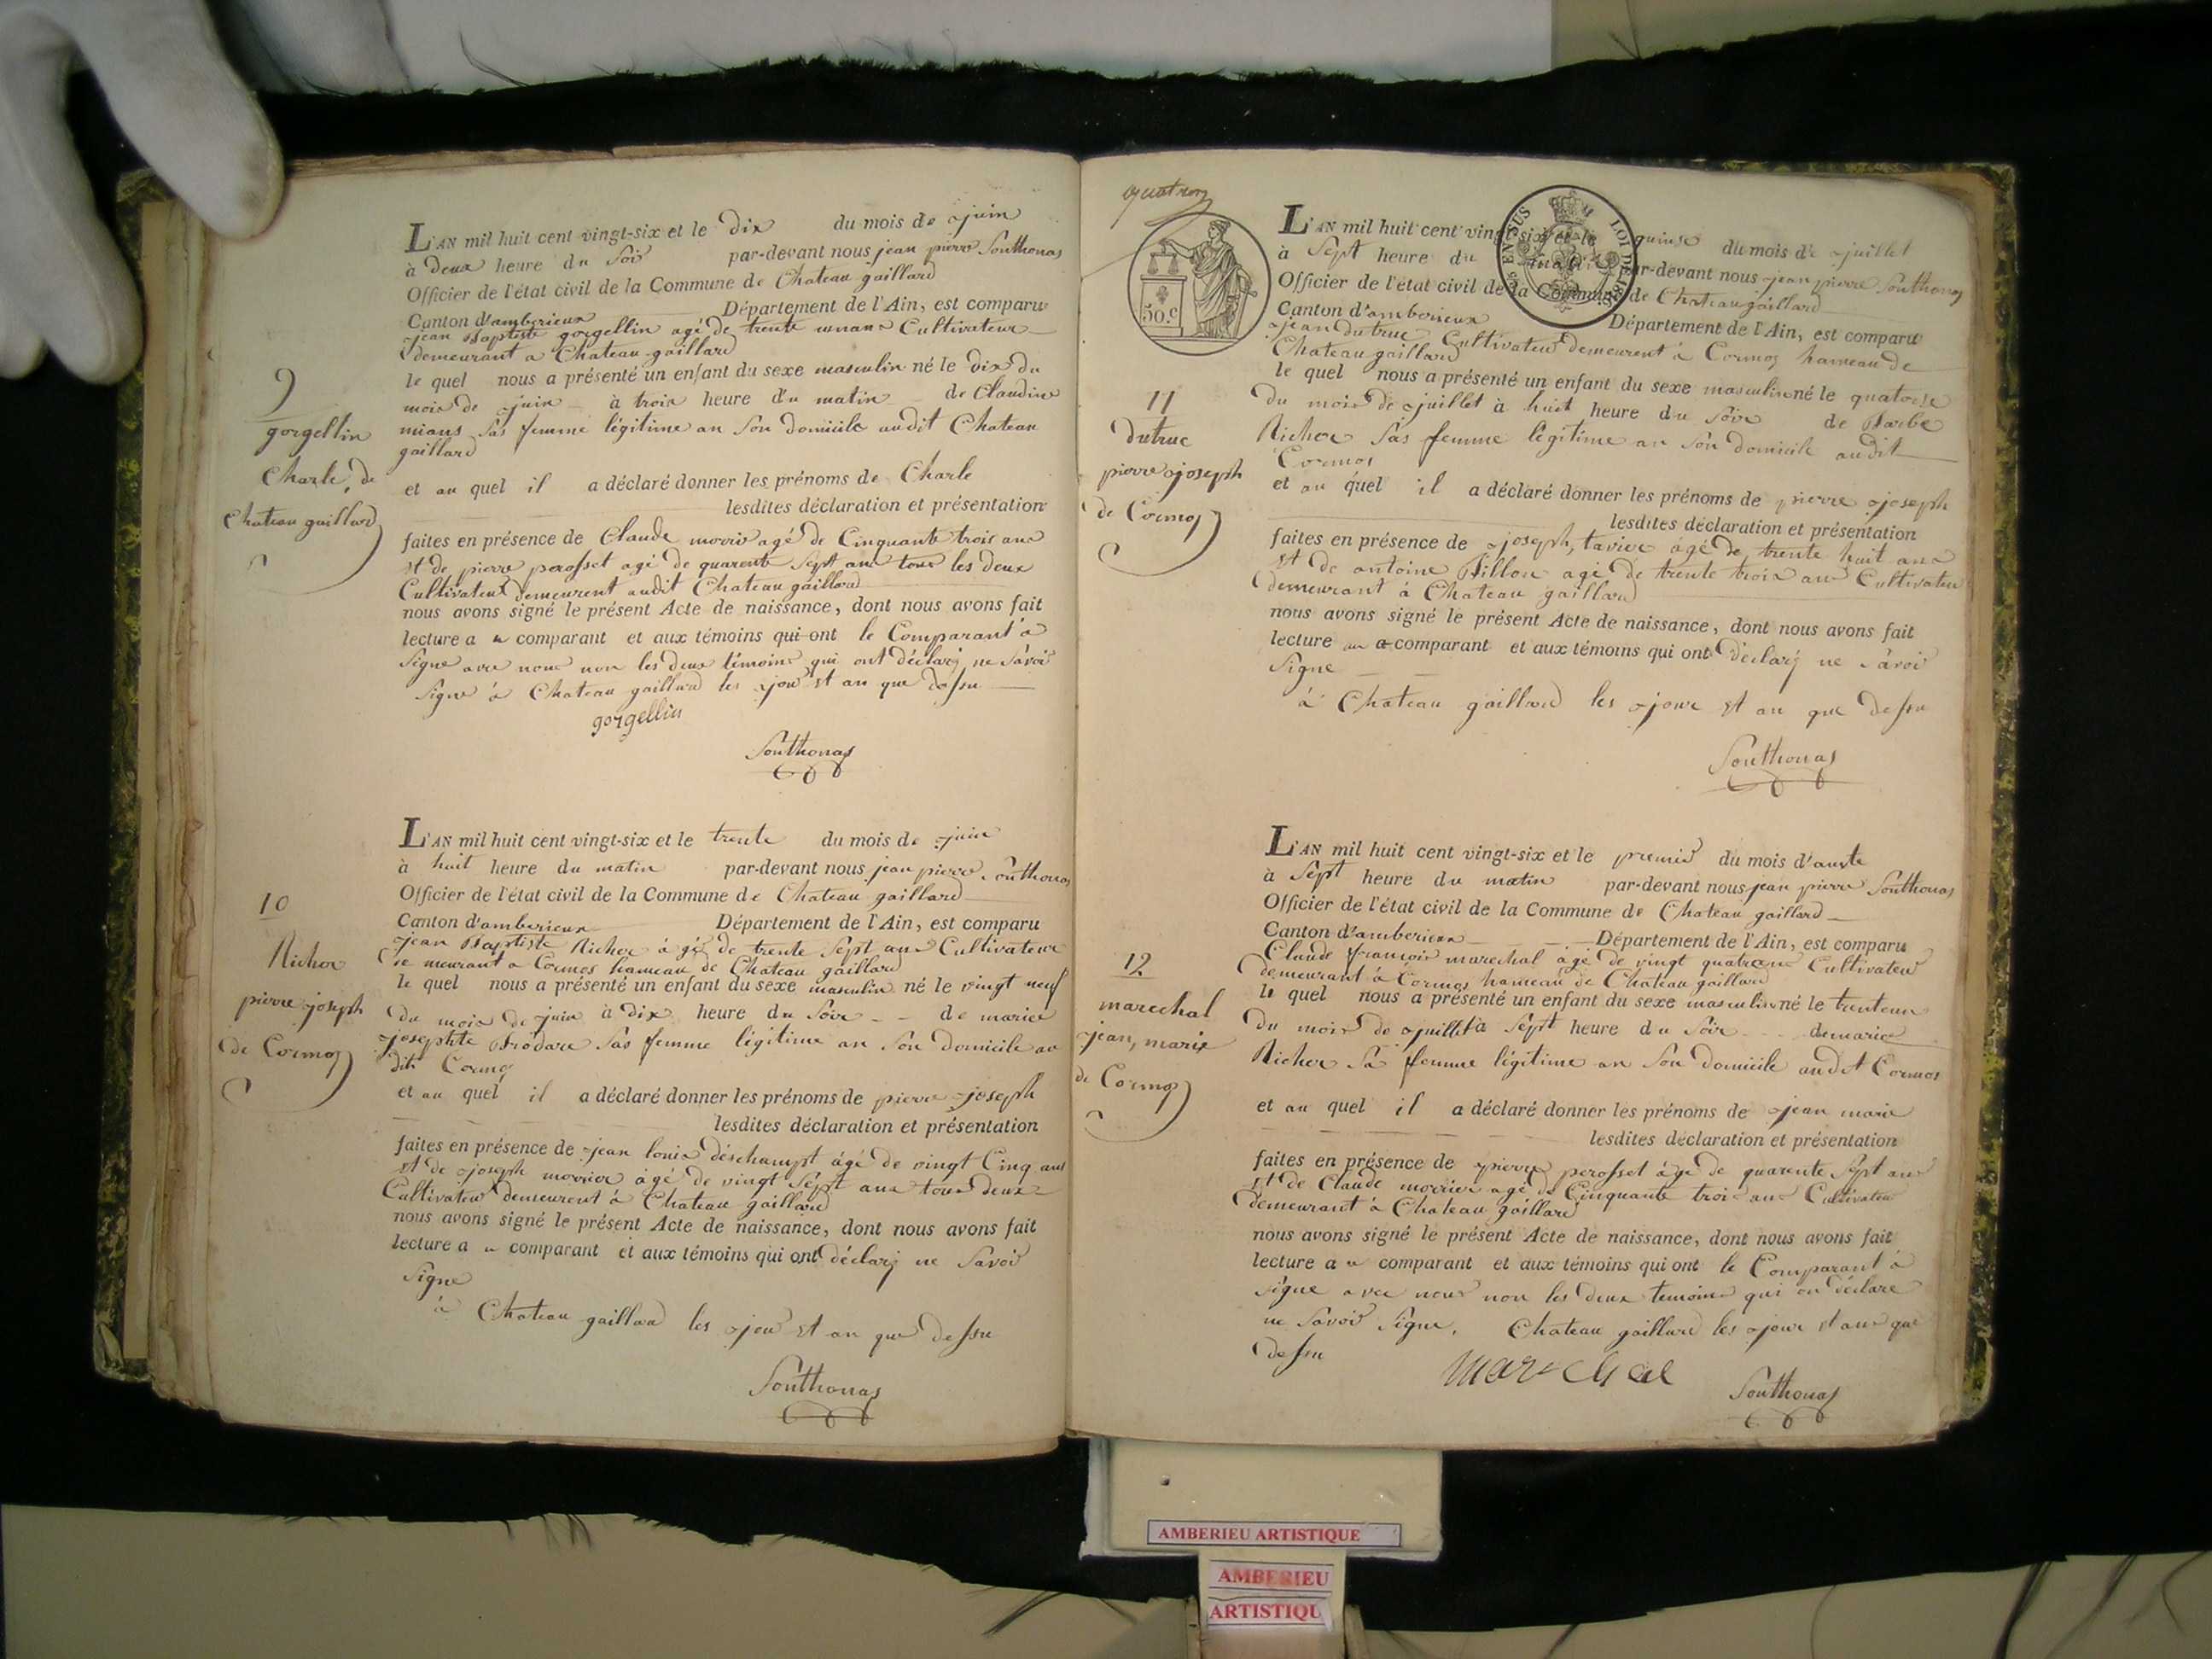 9
gorgellin
Charle, de
Chateau gaillard
L'AN mil huit cent vingt-six et le dix du mois de juin
à deux heure du soir par-devant nous jean pierre Southonas
Officier de l'état civil de la Commune de Chateau gaillard
Canton d'amberieux Département de l'Ain, est comparu
jean Baptiste gorgellin agé de trente unans Cultivateur
demeurant a Chateau gaillard
le quel nous a présenté un enfant du sexe masculin né le dix du
mois de juin à trois heure du matin de Claudine
mians sas femme légitime an son domicile audit Chateau
gaillard
et au quel il a déclaré donner les prénoms de Charle
lesdites déclaration et présentation
faites en présence de Claude morrier agé de Cinquante trois ans
et de pierre perosset agé de quarente sept ans tous les deux
Cultivateur demeurent audit Chateau gaillard
nous avons signé le présent Acte de naissance, dont nous avons fait
lecture a u comparant et aux témoins qui ont le Comparant à
signe avec nous non les deux témoins qui ont déclaré ne savoir
signe à Chateau gaillard les jour et an que dessu
gorgellin
Southonas
10
Richer
pierre joseph
de Cormoz
L'AN mil huit cent vingt-six et le trente du mois de juin
à huit heure du matin par-devant nous jean pierre Southonas
Officier de l'état civil de la Commune de Chateau gaillard
Canton d'amberieux Département de l'Ain, est comparu
jean Baptiste Richer à gé de trente sept ans Cultivateur
de meurant a Cormos hameau de Chateau gaillard
le quel nous a présenté un enfant du sexe masculin né le vingt neuf
du mois de juin à dix heure du soir de marie
josephte Brodare sas femme légitime an son domicile au
dit Cormoz
et au quel il a déclaré donner les prénoms de pierre joseph
lesdites déclaration et présentation
faites en présence de jean louis déschampt ágé de vingt Cinq ans
et de joseph morrier agé de vingt sépt ans tous deux
Cultivateur demeurent à Chateau gaillard
nous avons signé le présent Acte de naissance, dont nous avons fait
lecture a u comparant et aux témoins qui ont déclaré ne savoir
signe
à Chateau gaillard les jour et an que dessu
Southonas
quatron
50.c
EN SUS LOI DE
11
Dutruc
pierre joseph
de Cormoz
L'AN mil huit cent vingt-six et le quinse du mois de juillet
à sept heure du matin par-devant nous jean pierre Southonas
Officier de l'état civil de la Commune de Chateau gaillard
Canton d'amberieux Département de l'Ain, est comparu
jean dutruc Cultivateur demeurent à Cormoz hameau de
Chateau gaillard
le quel nous a présenté un enfant du sexe masculin né le quatorse
du mois de juillet à huit heure du soir de Barbe
Richer sas femme légitime an son domicile audit
Cormos
et au quel il a déclaré donner les prénoms de pierre joseph
lesdites déclaration et présentation
faites en présence de joseph, tavier ágé de trente huit ans
et de antoine Billon agé de trente trois ans Cultivateur
demeurant à Chateau gaillard
nous avons signé le présent Acte de naissance, dont nous avons fait
lecture au comparant et aux témoins qui ont déclaré ne savoir
signe
à Chateau gaillard les jour et an que dessu
Southonas
12
marechal
jean, marie
de Cormoz
L'AN mil huit cent vingt-six et le premier du mois d'auste
à sept heure du matin par-devant nous jean pierre Southonas
Officier de l'état civil de la Commune de Chateau gaillard
Canton d'amberieux Département de l'Ain, est comparu
Claude françois marechal agé de vingt quatrans Cultivateur
demeurant à Cormos hameau de Chateau gaillard
le quel nous a présenté un enfant du sexe masculin né le trenteun
du mois de juillet à sépt heure du soir de marie
Richer sa femme légitime an son domicile audit Cormos
et au quel il a déclaré donner les prénoms de jean marie
lesdites déclaration et présentation
faites en présence de pierre perosset ágé de quarente sept ans
et de Claude morrier agé de Cinquante trois ans Cultivateur
demeurant à Chateau gaillard
nous avons signé le présent Acte de naissance, dont nous avons fait
lecture a u comparant et aux témoins qui ont le Comparant à
signe avec nous non les deux temoins qui on déclare
ne savoir signe. Chateau gaillard les jour et ans que
dessu
marechal
Southonas
AMBERIEU ARTISTIQUE
AMBERIEU
ARTISTIQU